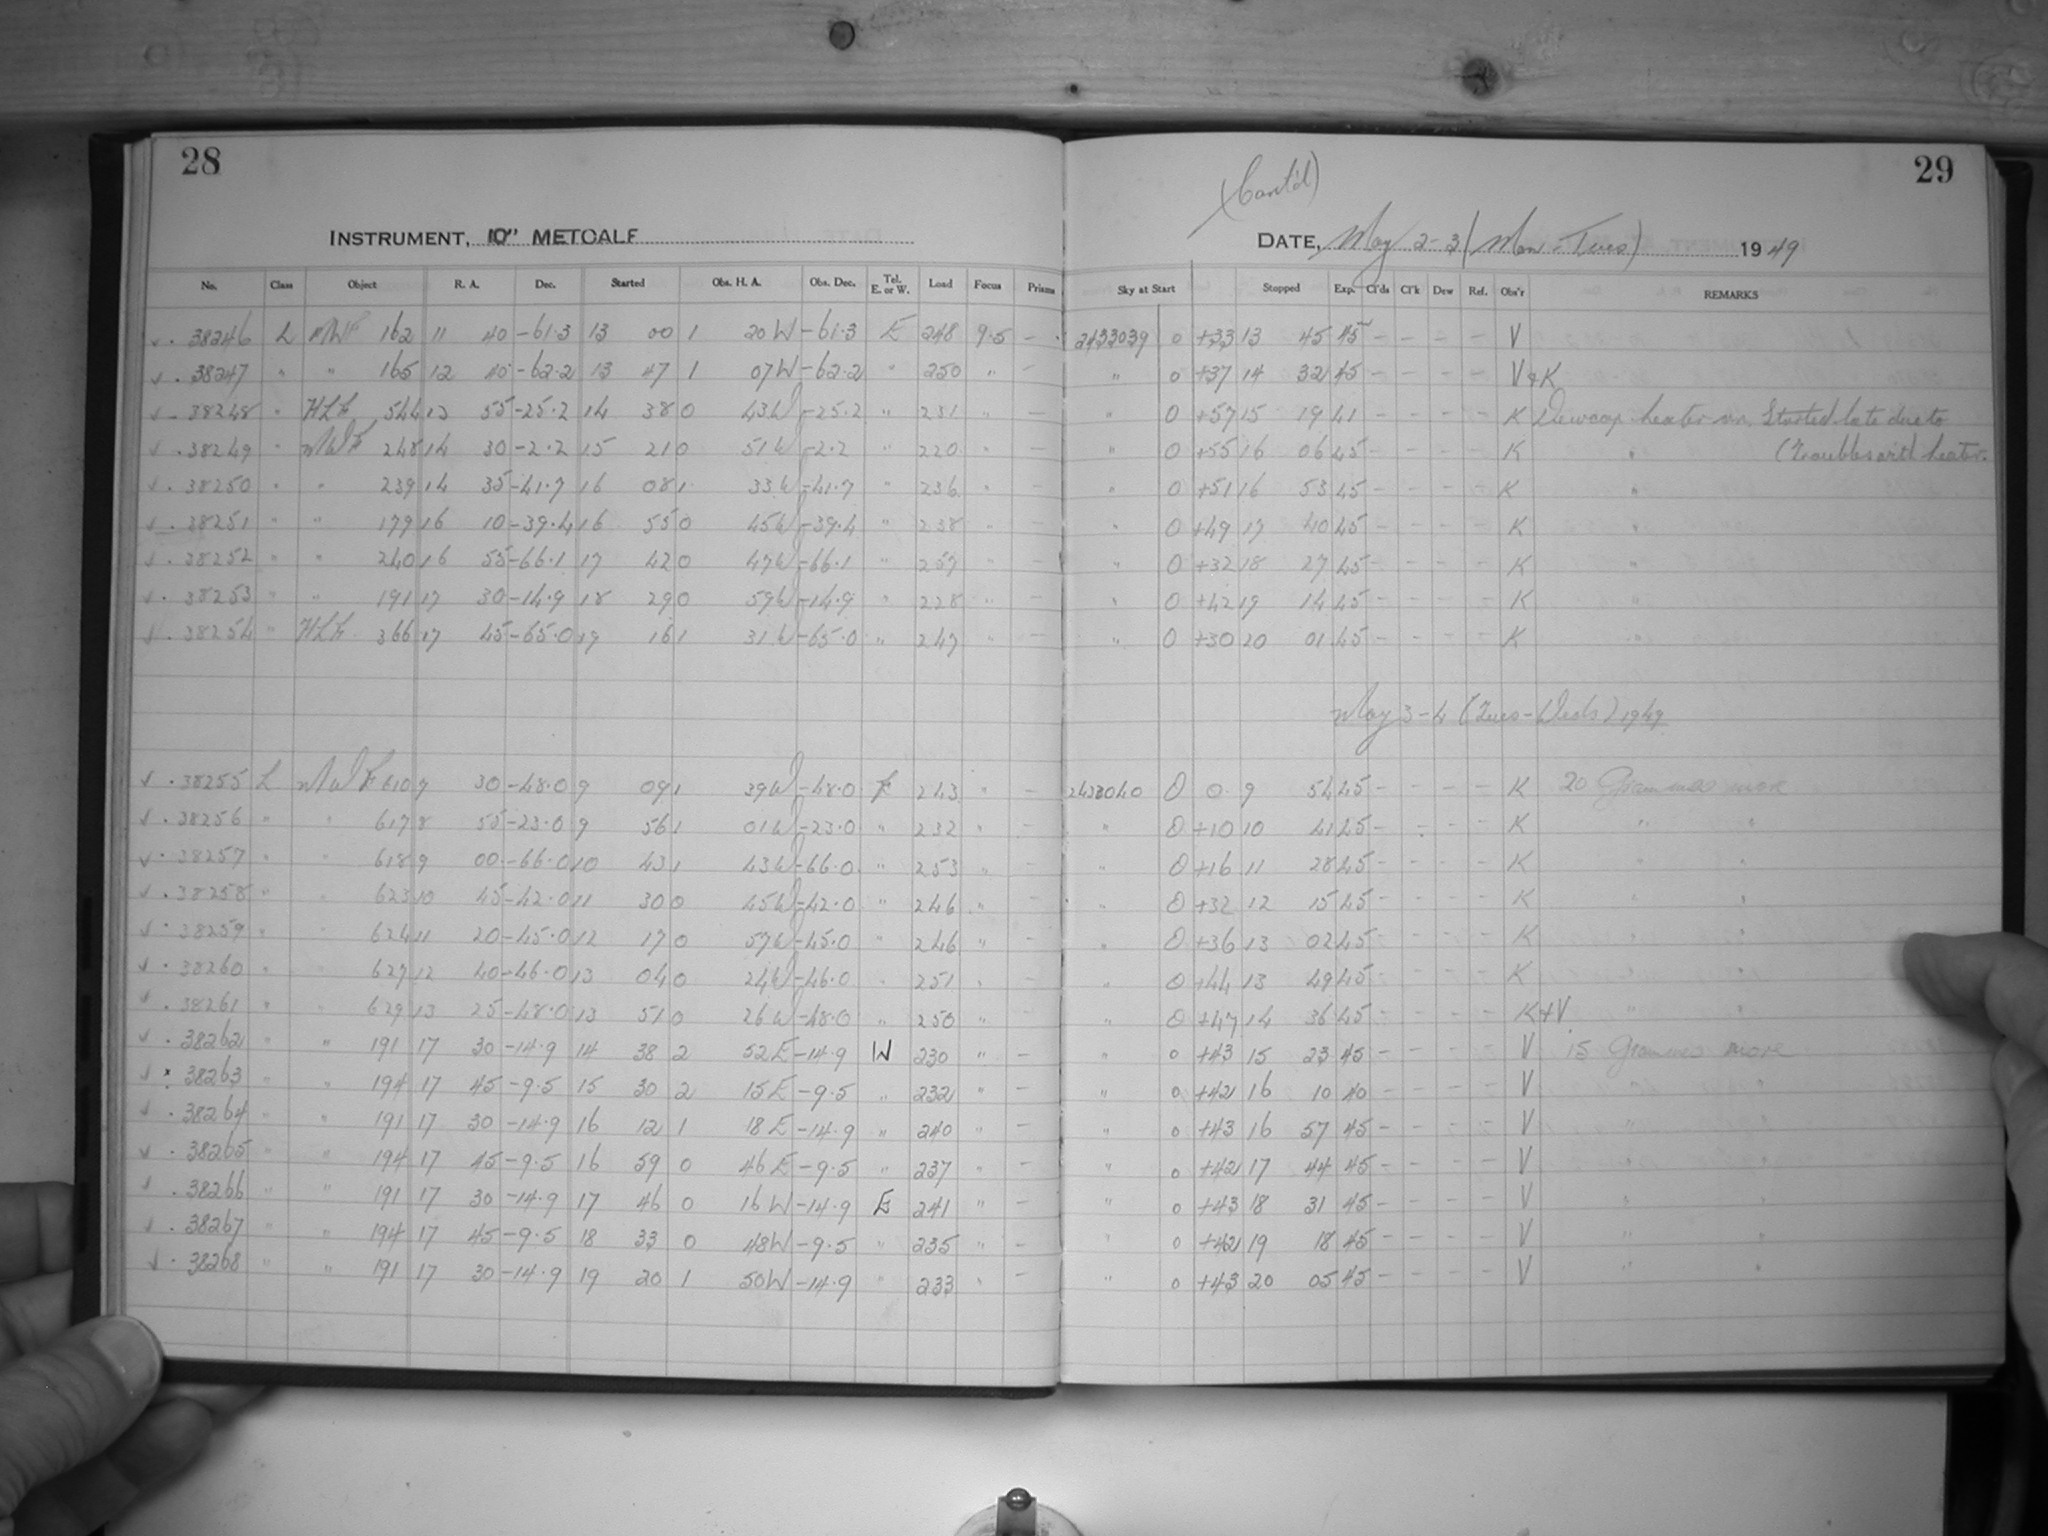 28
29
(Cont'd)
INSTRUMENT, 10" METCALF
DATE, May 2-3 (Mon-Tues) 1949
No. Class Object R. A. Dec. Started Obs. H. A. Obs. Dec. Tel. E. or W. Load Focus Prisms Sky at Start Stopped Exp. Cl'ds Cl'k Dew Ref. Obs'r REMARKS
√ . 38246 L MWF 162 11 40 -61.3 13 00 1 20 W -61.3 E 248 9.5 - . 2433039 0 +33 13 45 45 - - - - V
√ . 38247 " " 165 12 40 -62.2 13 47 1 07 W -62.2 " 250 " - " 0 +37 14 32 45 - - - - V & K
√ - 38248 " HLF 544 13 55 -25.2 14 38 0 43 W -25.2 " 231 " - " 0 +57 15 19 41 - - - - K Dewcap heater on. Started late due to
√ . 38249 " MWF 248 14 30 -2.2 15 21 0 51 W -2.2 " 220 " - " 0 +55 16 06 45 - - - - K " (Troubles with heater.
√ . 38250 " " 239 14 35 -41.7 16 08 1 33 W -41.7 " 236 " - " 0 +51 16 53 45 - - - - K "
√ . 38251 " " 179 16 10 -39.4 16 55 0 45 W -39.4 " 238 " - " 0 +49 17 40 45 - - - - K "
√ . 38252 " " 240 16 55 -66.1 17 42 0 47 W -66.1 " 257 " - " 0 +32 18 27 45 - - - - K "
√ . 38253 " " 191 17 30 -14.9 18 29 0 59 W -14.9 " 228 " - " 0 +42 19 14 45 - - - - K "
√ . 38254 " HLF 366 17 45 -65.0 19 16 1 31 W -65.0 " 247 " - " 0 +30 20 01 45 - - - - K "
May 3-4 (Tues-Weds) 1949
√ . 38255 L MWF 610 7 30 -48.0 9 09 1 39 W -48.0 E 243 " - 2433040 0 0 9 54 45 - - - - K 20 Grammes more
√ . 38256 " " 617 8 55 -23.0 9 56 1 01 W -23.0 " 232 " - " 0 +10 10 41 45 - - - - K " "
√ . 38257 " " 618 9 00 -66.0 10 43 1 43 W -66.0 " 253 " - " 0 +16 11 28 45 - - - - K " "
√ . 38258 " " 623 10 45 -42.0 11 30 0 45 W -42.0 " 246 " - " 0 +32 12 15 45 - - - - K " "
√ . 38259 " " 624 11 20 -45.0 12 17 0 57 W -45.0 " 246 " - " 0 +36 13 02 45 - - - - K " "
√ . 38260 " " 627 12 40 -46.0 13 04 0 24 W -46.0 " 251 " - " 0 +44 13 49 45 - - - - K " "
√ . 38261 " " 629 13 25 -48.0 13 51 0 26 W -48.0 " 250 " - " 0 +47 14 36 45 - - - - K & V " "
√ . 38262 " " 191 17 30 -14.9 14 38 2 52 E -14.9 W 230 " - " 0 +43 15 23 45 - - - - V 15 Grammes more
√ x 38263 " " 194 17 45 -9.5 15 30 2 15 E -9.5 " 232 " - " 0 +42 16 10 40 - - - - V " "
√ . 38264 " " 191 17 30 -14.9 16 12 1 18 E -14.9 " 240 " - " 0 +43 16 57 45 - - - - V " "
√ . 38265 " " 194 17 45 -9.5 16 59 0 46 E -9.5 " 237 " - " 0 +42 17 44 45 - - - - V " "
√ . 38266 " " 191 17 30 -14.9 17 46 0 16 W -14.9 E 241 " - " 0 +43 18 31 45 - - - - V " "
√ . 38267 " " 194 17 45 -9.5 18 33 0 48 W -9.5 " 235 " - " 0 +42 19 18 45 - - - - V " "
√ . 38268 " " 191 17 30 -14.9 19 20 1 50 W -14.9 " 233 " - " 0 +43 20 05 45 - - - - V " "